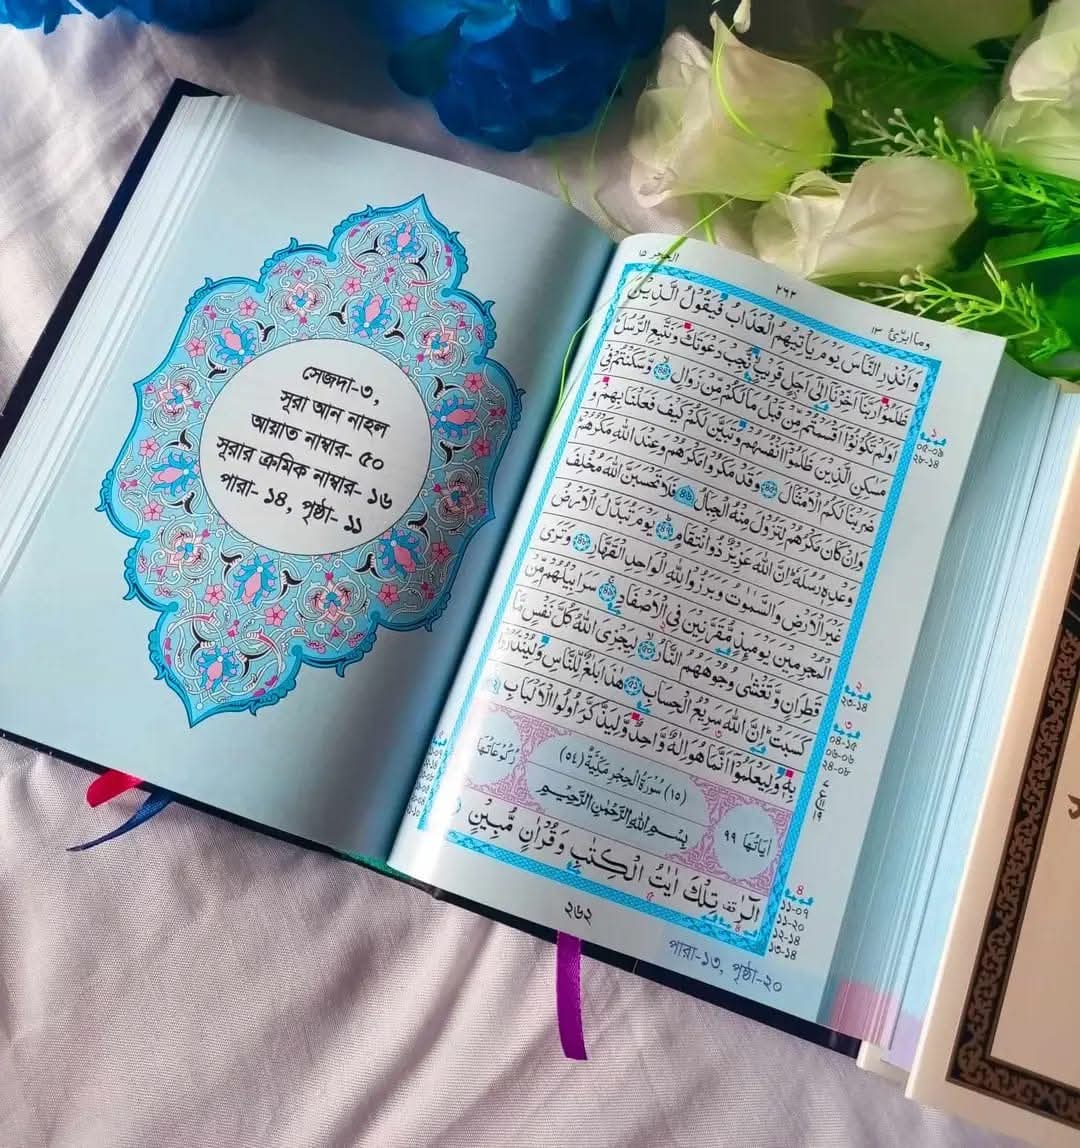 সেজদা-৩,
সূরা আন নাহল
আয়াত নাম্বার- ৫০
সূরার ক্রমিক নাম্বার- ১৬
পারা- ১৪, পৃষ্ঠা- ১১
وما ابرئ ١٣
٢٦٢
وَاَنْذِرِ النَّاسَ يَوْمَ يَاْتِيْهِمُ الْعَذَابُ فَيَقُوْلُ الَّذِيْنَ
ظَلَمُوْا رَبَّنَآ اَخِّرْنَآ اِلٰٓى اَجَلٍ قَرِيْبٍ نُّجِبْ دَعْوَتَكَ وَنَتَّبِعِ الرُّسُلَ
اَوَلَمْ تَكُوْنُوْٓا اَقْسَمْتُمْ مِّنْ قَبْلُ مَا لَكُمْ مِّنْ زَوَالٍ ﴿٤٤﴾ وَّسَكَنْتُمْ فِيْ
مَسٰكِنِ الَّذِيْنَ ظَلَمُوْٓا اَنْفُسَهُمْ وَتَبَيَّنَ لَكُمْ كَيْفَ فَعَلْنَا بِهِمْ وَ
ضَرَبْنَا لَكُمُ الْاَمْثَالَ ﴿٤٥﴾ وَقَدْ مَكَرُوْا مَكْرَهُمْ وَعِنْدَ اللّٰهِ مَكْرُهُمْ
وَاِنْ كَانَ مَكْرُهُمْ لِتَزُوْلَ مِنْهُ الْجِبَالُ ﴿٤٦﴾ فَلَا تَحْسَبَنَّ اللّٰهَ مُخْلِفَ
وَعْدِهٖ رُسُلَهٗ اِنَّ اللّٰهَ عَزِيْزٌ ذُو انْتِقَامٍ ﴿٤٧﴾ يَوْمَ تُبَدَّلُ الْاَرْضُ
غَيْرَ الْاَرْضِ وَالسَّمٰوٰتُ وَبَرَزُوْا لِلّٰهِ الْوَاحِدِ الْقَهَّارِ ﴿٤٨﴾ وَتَرَى
الْمُجْرِمِيْنَ يَوْمَئِذٍ مُّقَرَّنِيْنَ فِي الْاَصْفَادِ ﴿٤٩﴾ سَرَابِيْلُهُمْ مِّنْ
قَطِرَانٍ وَّتَغْشٰى وُجُوْهَهُمُ النَّارُ ﴿٥٠﴾ لِيَجْزِيَ اللّٰهُ كُلَّ نَفْسٍ مَّا
كَسَبَتْ اِنَّ اللّٰهَ سَرِيْعُ الْحِسَابِ ﴿٥١﴾ هٰذَا بَلٰغٌ لِّلنَّاسِ وَلِيُنْذَرُوْا
بِهٖ وَلِيَعْلَمُوْٓا اَنَّمَا هُوَ اِلٰهٌ وَّاحِدٌ وَّلِيَذَّكَّرَ اُولُوا الْاَلْبَابِ ﴿٥٢﴾
اٰيَاتُهَا ٩٩
(١٥) سُوْرَةُ الْحِجْرِ مَكِّيَّةٌ (٥٤)
رُكُوْعَاتُهَا
بِسْمِ اللّٰهِ الرَّحْمٰنِ الرَّحِيْمِ
الٓرٰ تِلْكَ اٰيٰتُ الْكِتٰبِ وَقُرْاٰنٍ مُّبِيْنٍ
٢٦٢
পারা-১৩, পৃষ্ঠা-২০